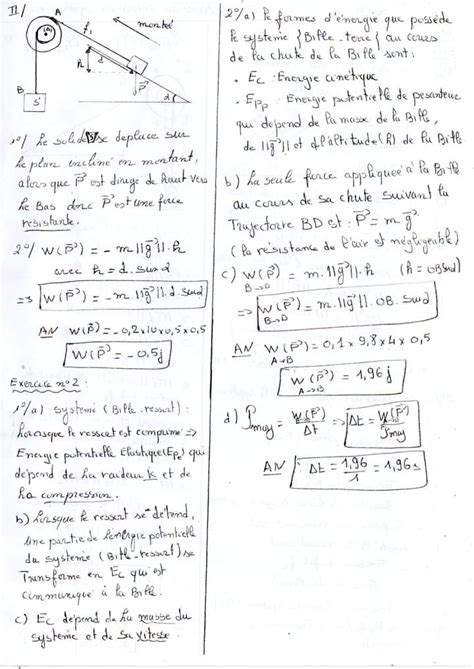 II/
A
f₁
montée
h
d
P⃗
α
B
S'
1°/ Le solide S se deplace sur
le plan incliné en montant,
alors que P⃗ est dirigé de haut vers
le Bas donc P⃗ est une force
resistante.
2°/ W(P⃗) = - m.||g⃗||.h
avec h = d.sin α
=> W(P⃗) = - m.||g⃗||.d.sin α
AN W(P⃗) = - 0,2x10x0,5x0,5
W(P⃗) = - 0,5j
Exercice n°2 :
1°/a) système (Bille-ressort) :
Lorsque le ressort est comprimé =>
Energie potentielle Elastique(Ep) qui
dépend de la raideur k et de
la compression.
b) Lorsque le ressort se détend,
une partie de l'énergie potentielle
du système (Bille-ressort) se
Transforme en Ec qui est
communiqué à la Bille.
c) Ec dépend de la masse du
système et de sa vitesse.
2°/a) les formes d'énergie que possède
le système {Bille-terre} au cours
de la chute de la Bille sont :
• Ec : Energie cinétique
• Epp : Energie potentielle de pesanteur
qui dépend de la masse de la Bille,
de ||g⃗|| et d'altitude (h) de la Bille
b) la seule force appliquée à la Bille
au cours de sa chute suivant la
Trajectoire BD est : P⃗ = m.g⃗
(la résistance de l'air est négligeable)
c) W(P⃗) = m.||g⃗||.h (h = OB sin α)
B→D
=> W(P⃗) = m.||g⃗||.OB.sin α
B→D
AN W(P⃗) = 0,1 x 9,8 x 4 x 0,5
A→B
W(P⃗) = 1,96j
A→B
d) Pmoy = W(P⃗)/Δt => Δt = W(P⃗)/Pmoy
AN Δt = 1,96/1 = 1,96s